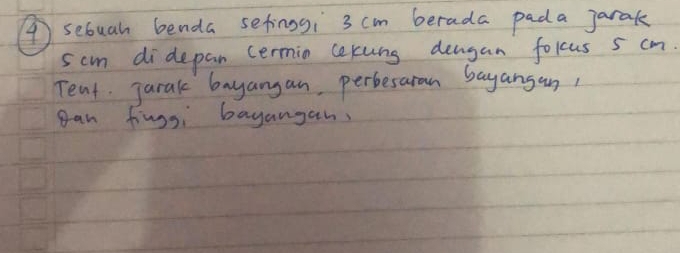 4 sebuah benda setinggi 3 cm berada pada jarak
5 cm di depan cermin cekung dengan fokus 5 cm.
Tent. jarak bayangan, perbesaran bayangan,
dan tinggi bayangan.